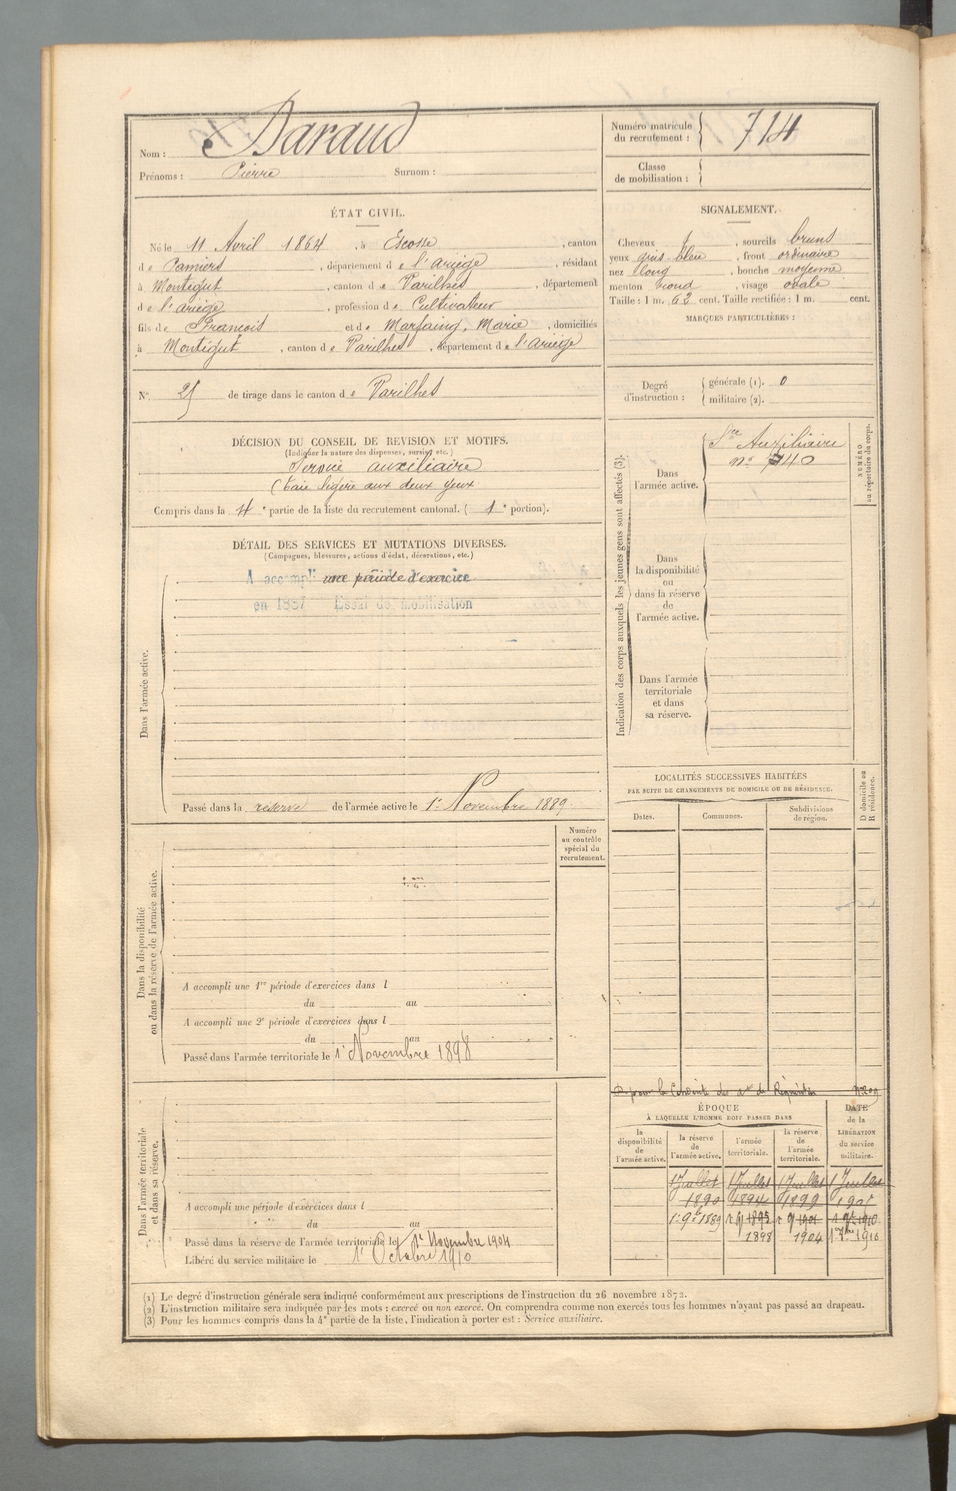 Nom : Daraud
Prénoms : Pierre Surnom :
Numéro matricule du recrutement : 714
Classe de mobilisation :
ÉTAT CIVIL.
Né le 11 Avril 1864, à Escosse, canton
de Pamiers, département de l'ariège, résidant
à Montégut, canton de Varilhes, département
de l'ariège, profession de Cultivateur
fils de François et de Marfaing, Marie, domiciliés
à Montégut, canton de Varilhes, département de l'ariège
SIGNALEMENT.
Cheveux , sourcils bruns
yeux gris bleu, front ordinaire
nez long, bouche moyenne
menton rond, visage ovale
Taille : 1 m. 62 cent. Taille rectifiée : 1 m. cent.
MARQUES PARTICULIÈRES :
N° 25 de tirage dans le canton de Varilhes
Degré d'instruction : générale (1). 0
militaire (2).
DÉCISION DU CONSEIL DE REVISION ET MOTIFS.
(Indiquer la nature des dispenses, sursis, etc.)
Service auxiliaire
(taie légère aux deux yeux
Compris dans la 4e partie de la liste du recrutement cantonal. ( 1e portion).
DÉTAIL DES SERVICES ET MUTATIONS DIVERSES.
(Campagnes, blessures, actions d'éclat, décorations, etc.)
Dans l'armée active.
A accompli une période d'exercice
en 1887 Essai de mobilisation
Passé dans la réserve de l'armée active le 1er Novembre 1889
Indication des corps auxquels les jeunes gens sont affectés (3).
Dans l'armée active.
Sce Auxiliaire
n° 740
NUMÉRO au répertoire du corps.
Dans la disponibilité ou dans la réserve de l'armée active.
Dans l'armée territoriale et dans sa réserve.
LOCALITÉS SUCCESSIVES HABITÉES
PAR SUITE DE CHANGEMENTS DE DOMICILE OU DE RÉSIDENCE.
D domicile ou R résidence.
Dates. Communes. Subdivisions de région.
Dans la disponibilité ou dans la réserve de l'armée active.
Numéro au contrôle spécial du recrutement.
A accompli une 1re période d'exercices dans l
du au
A accompli une 2e période d'exercices dans l
du au
Passé dans l'armée territoriale le 1er Novembre 1898
Dans l'armée territoriale et dans sa réserve.
A accompli une période d'exercices dans l
du au
Passé dans la réserve de l'armée territoriale le 1er Novembre 1904
Libéré du service militaire le 1er Octobre 1910
ÉPOQUE
À LAQUELLE L'HOMME DOIT PASSER DANS
DATE de la LIBÉRATION du service militaire.
la disponibilité de l'armée active.
la réserve de l'armée active.
l'armée territoriale.
la réserve de l'armée territoriale.
1 Juillet 1 Juillet 1 Juillet 1 Juillet
1890 1894 1899
1898 1904
(1) Le degré d'instruction générale sera indiqué conformément aux prescriptions de l'instruction du 26 novembre 1872.
(2) L'instruction militaire sera indiquée par les mots : exercé ou non exercé. On comprendra comme non exercés tous les hommes n'ayant pas passé au drapeau.
(3) Pour les hommes compris dans la 4e partie de la liste, l'indication à porter est : Service auxiliaire.